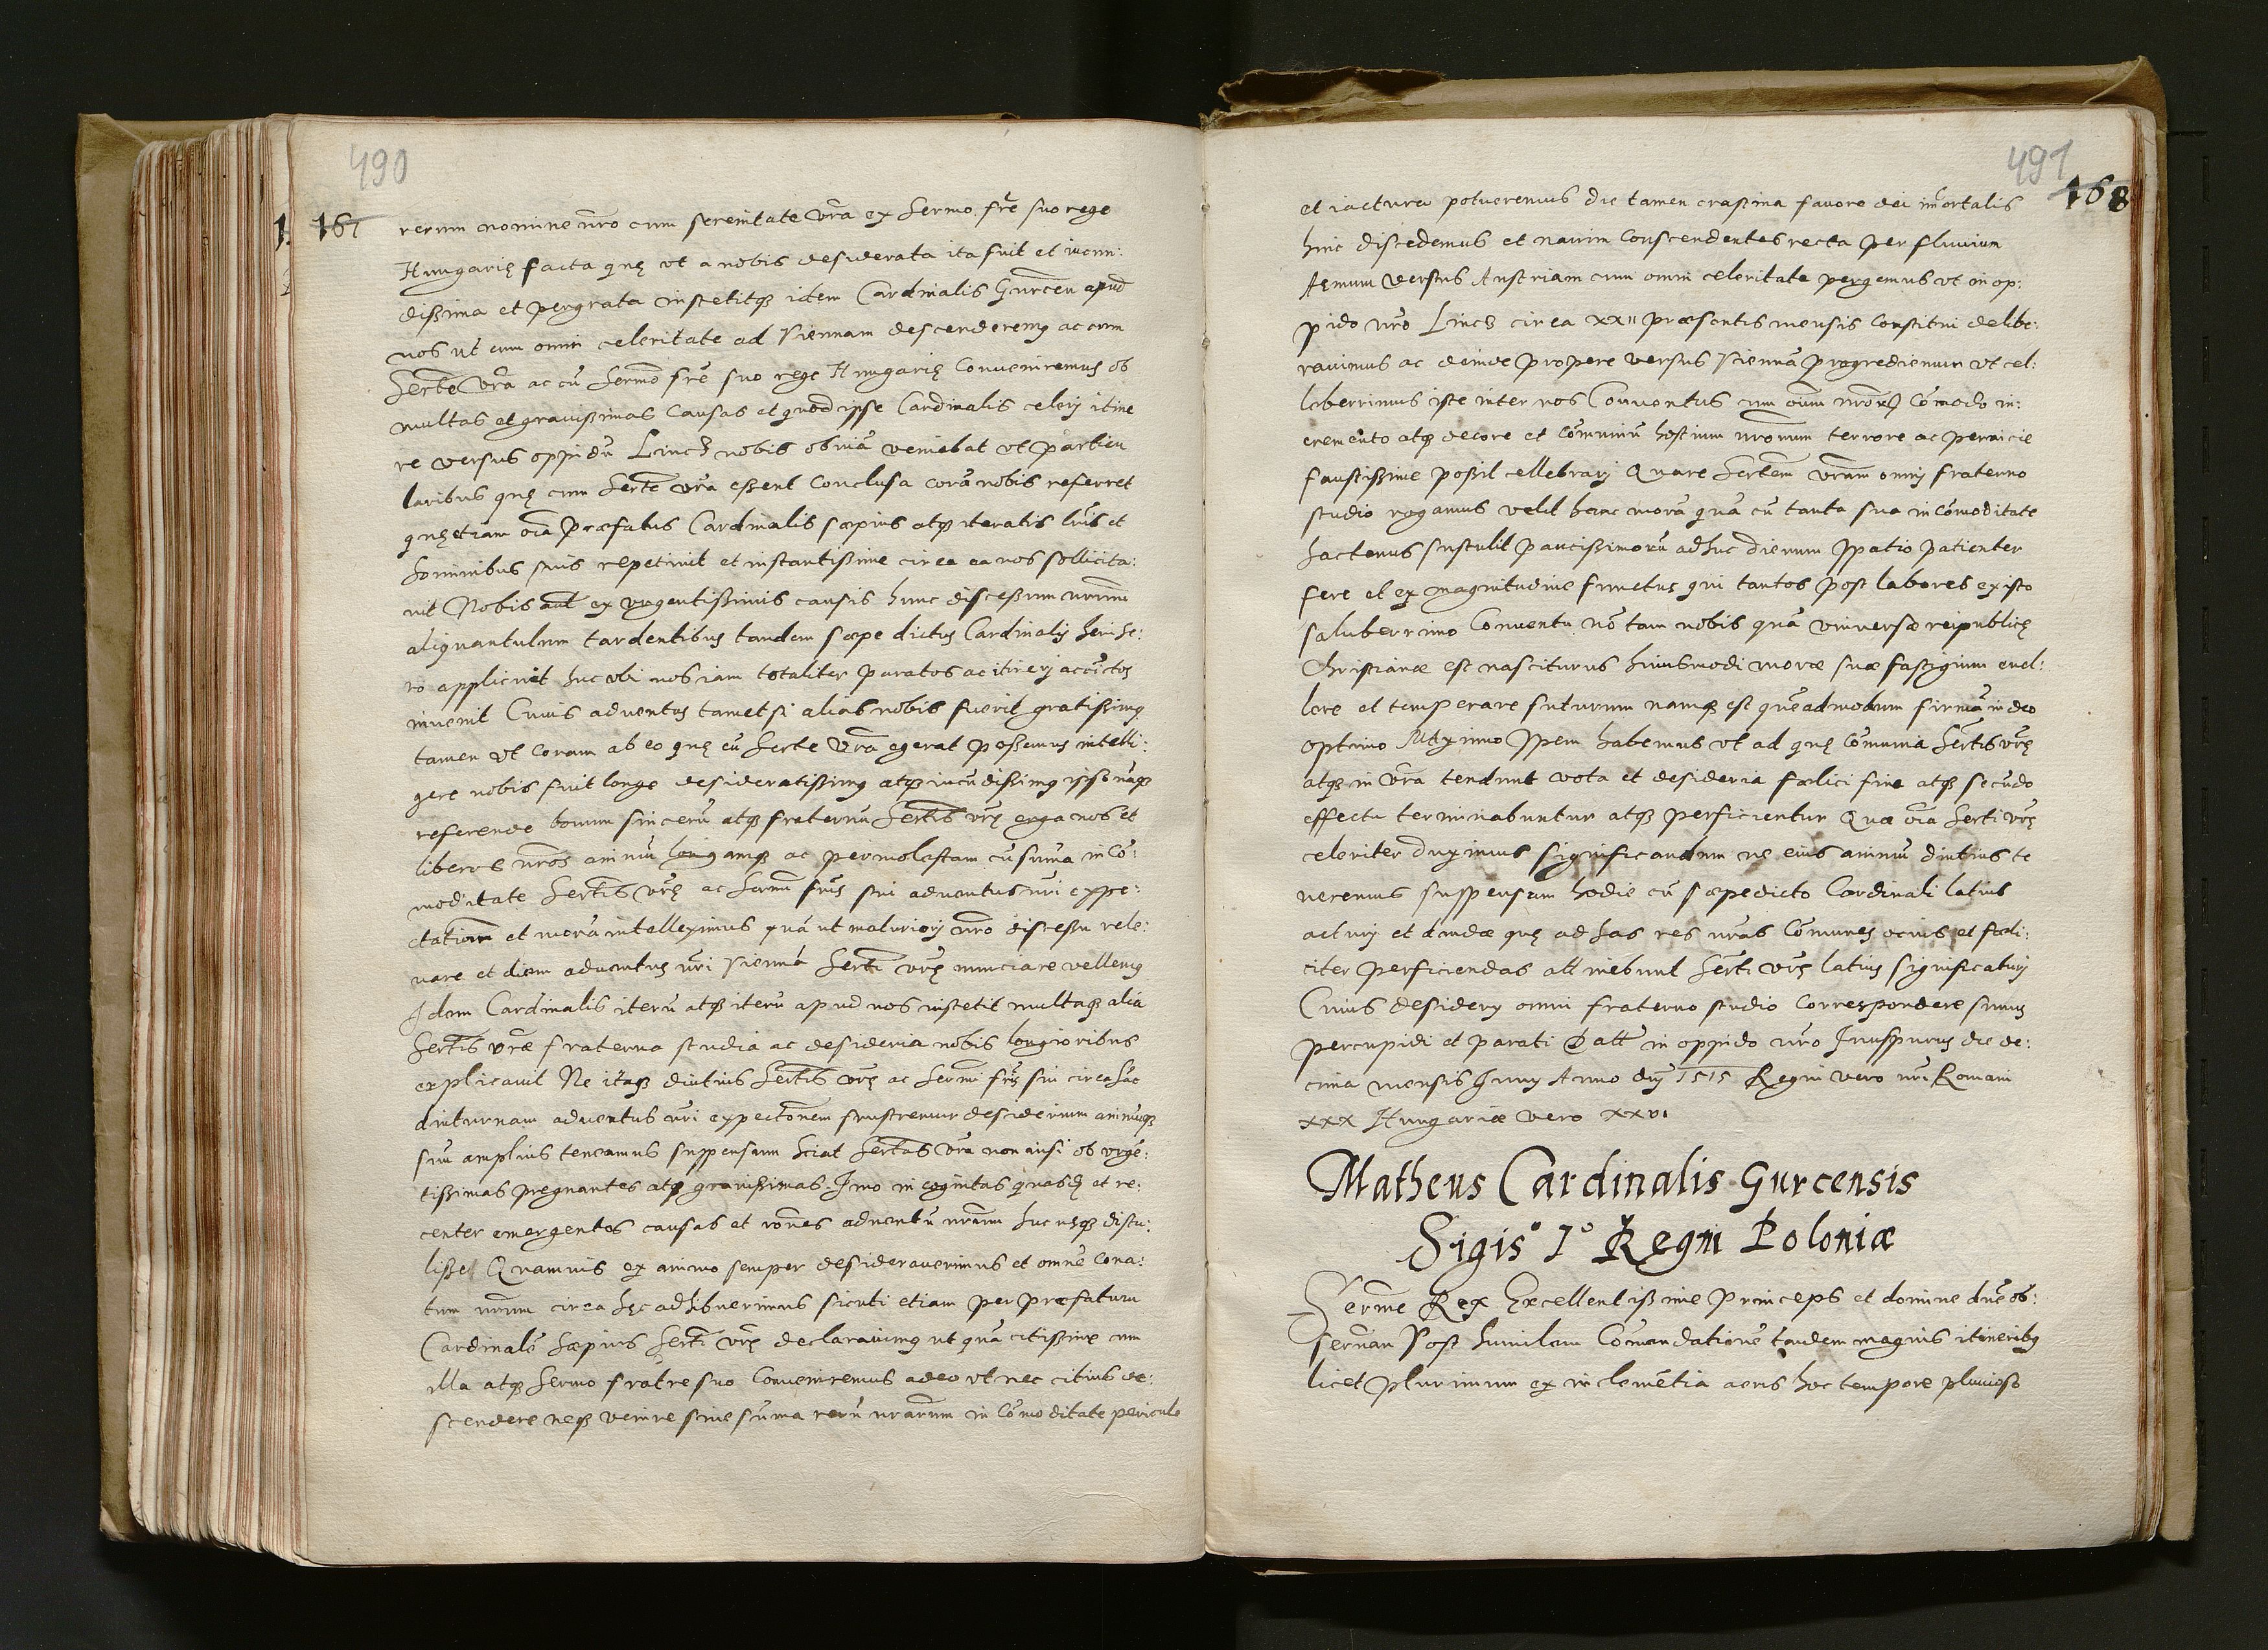 490
167
rerum nomine nr̄o cum serenitate vr̄a ex Sermo. frē suo rege
Hungarię facta quę vt a nobis desiderata ita fuit et iucun:
dißima et pergrata instititq; idem Cardinalis Gurcen apud
nos ut cum omni celeritate ad Viennam descenderemus ac cum
Sertē vr̄a ac cū Sermō frē suo rege Hungarię Conueniremus ob
multas et grauißimas Causas et quod ipse Cardinalis celeri itine
re versus oppidū Lincz nobis obuiā veniebat vt particu
laribus quę cum Sertē vr̄a eßent Conclusa corā nobis referret
quę etiam oīa Præfatus Cardinalis sæpius atq; iteratis lr̄is et
hominibus suis repetiuit et instantißime circa ea nos sollicita:
uit Nobis aūt ex vrgentißimis causis hunc discessum nrum̄
aliquantulum tardentibus tandem sæpe dictus Cardinalis heri se:
ro applicuit huc vbi nos iam totaliter paratos ac itineri accīctos
inuenit Cuius aduentus tametsi alias nobis fuerit gratißimus
tamen vt Coram ab eo quę cū Serte Vr̄a egerat poßemus intelli:
gere nobis fuit longe desideratißimus atq; iucūdißimus ipso nāq;
referende bonum sincerū atq; fraternū Sertis̄ vr̄ę erga nos et
liberos nr̄os animū longamq; ac permolestam cū sūma incō:
moditate Sertis̄ vr̄ę ac Sermī fr̄is sui aduentus nr̄i expe:
ctationem et morā intelleximus quā ut maturiori nr̄o discessu rele:
uare et diem aduentus nr̄i Viennā Sertī vr̄ę nunciare vellemus
Idem Cardinalis iterū atq; iterū apud nos institit multaq; alia
Sertis̄ vr̄æ fraterna studia ac desideria nobis longioribus
explicauit Ne itaq; diutius Sertis̄ vr̄ę ac Sermi fr̄is sui circa hāc
diuturnam aduentus nr̄i expectonem frustremur desiderium animūq;
suū amplius teneamus suspensum Sciat Sertas̄ Vr̄a non nisi ob vrgē:
tißimas pregnantes atq; grauißimas. Imo incognitas quasdā et re:
center emergentes causas et rōnes aduentū nrum̄ huc usq; distu:
lißet Quamuis ex animo semper desiderauerimus et omnē Cona:
tum nrum̄ circa hęc adhibuerimus sicuti etiam per præfatum
Cardinalē Sæpius Sertī vr̄ę declarauimus ut quā citißime cum
illa atq; Sermo fratre suo Conueniremus adeo vt nec citius de:
scendere neq; venire sine sūma rerū nrarum̄ incōmoditate periculo
491
168
et iactura potueremus die tamen crastina fauore dei im̄ortalis
hinc discedemus et nauim Conscendentes recta per fluuium
Aęnum versus Austriam cum omni celeritate pergemus vt in op:
pido nr̄o Lincz circa xxii præsentis mensis Constitui delibe:
rauimus ac deinde Prospere versus Viennā Progrediemur vt cel:
leberrimus iste inter nos Conuentus cum oīum nror̄ Cōmodo in:
cremento atq; decore et Cōmuniū hostium nrorum̄ terrore ac pernicie
faustißime poßit cellebrari Quare Sertem̄ vram̄ omni fraterno
studio rogamus velit hanc morā quā cū tanta sua incōmoditate
hactenus sustulit paucißimorū adhuc dierum spatio patienter
fere et ex magnitudine fructus qui tantos post labores ex isto
saluberrimo Conuentu nō tam nobis quā vniversæ reipublicę
Christianæ est nasciturus huiusmodi moræ suæ fastigium euel:
lere et temperare futurum namq; est quēadmodum firmā in deo
optimo Maximo spem habemus vt ad quę Cōmunia Sertis̄ vr̄ę
atq; in vr̄a tendunt vota et desideria fælici fine atq; secūdo
effectu terminabuntur atq; perficientur Quæ oīa Serti vr̄ę
celeriter duximus significandum ne eius animū diutius te
neremus suspensum hodie cū sæpedicto Cardinali latius
acturi et dandæ quę ad has res nr̄as Cōmunes ocius et fæli:
citer perficiendas attinebunt Sertī vr̄ę latius significaturi
Cuius desiderij omni fraterno studio Correspondere sumus
percupidi et parati Datt in oppido nr̄o Inuspurus die de:
cima mensis Junij Anno dnj 1515 Regni vero nr̄i Romani
xxx Hungariæ vero xxvi
Matheus Cardinalis Gurcensis
Sigis° I° Regni Poloniæ
Serme Rex Excellentißime Princeps et domine dnē ob:
seruan̄ Post humilem Cōmendationē tandem magnis itineribus
licet Plurimum ex inclemētia aeris hoc tempore pluuioso